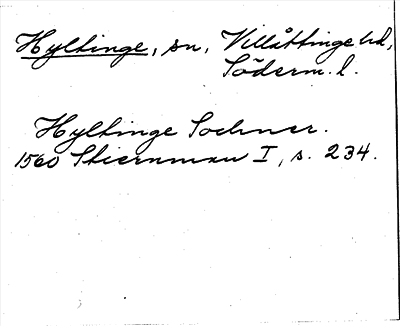 Hyltinge, sn, Villåttinge hd,
Söderm. l.
Hyltinge Sochner.
1560 Stiernman I, s. 234.